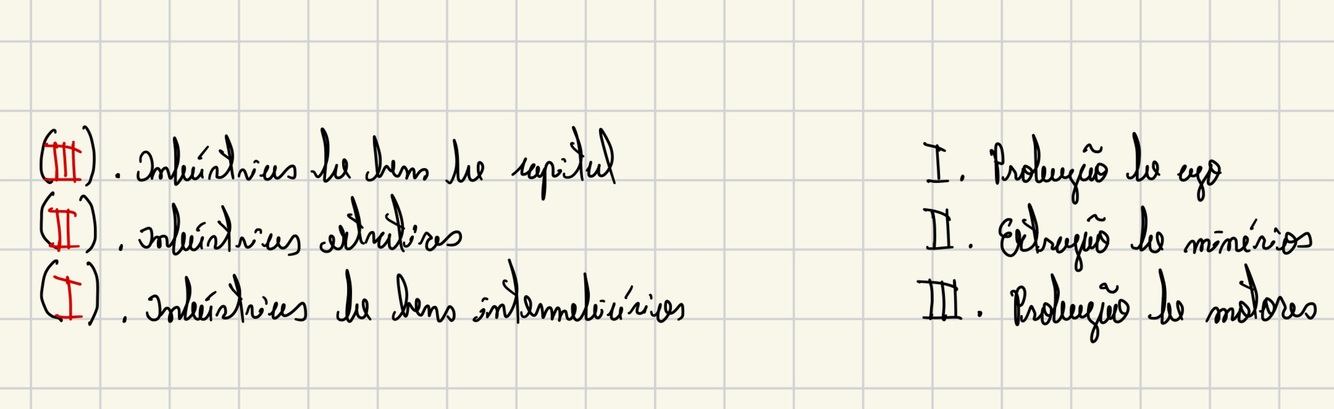 (III). Indústrias de bens de capital
(II). Indústrias extrativas
(I). Indústrias de bens intermediários
I. Produção de aço
II. Extração de minérios
III. Produção de motores